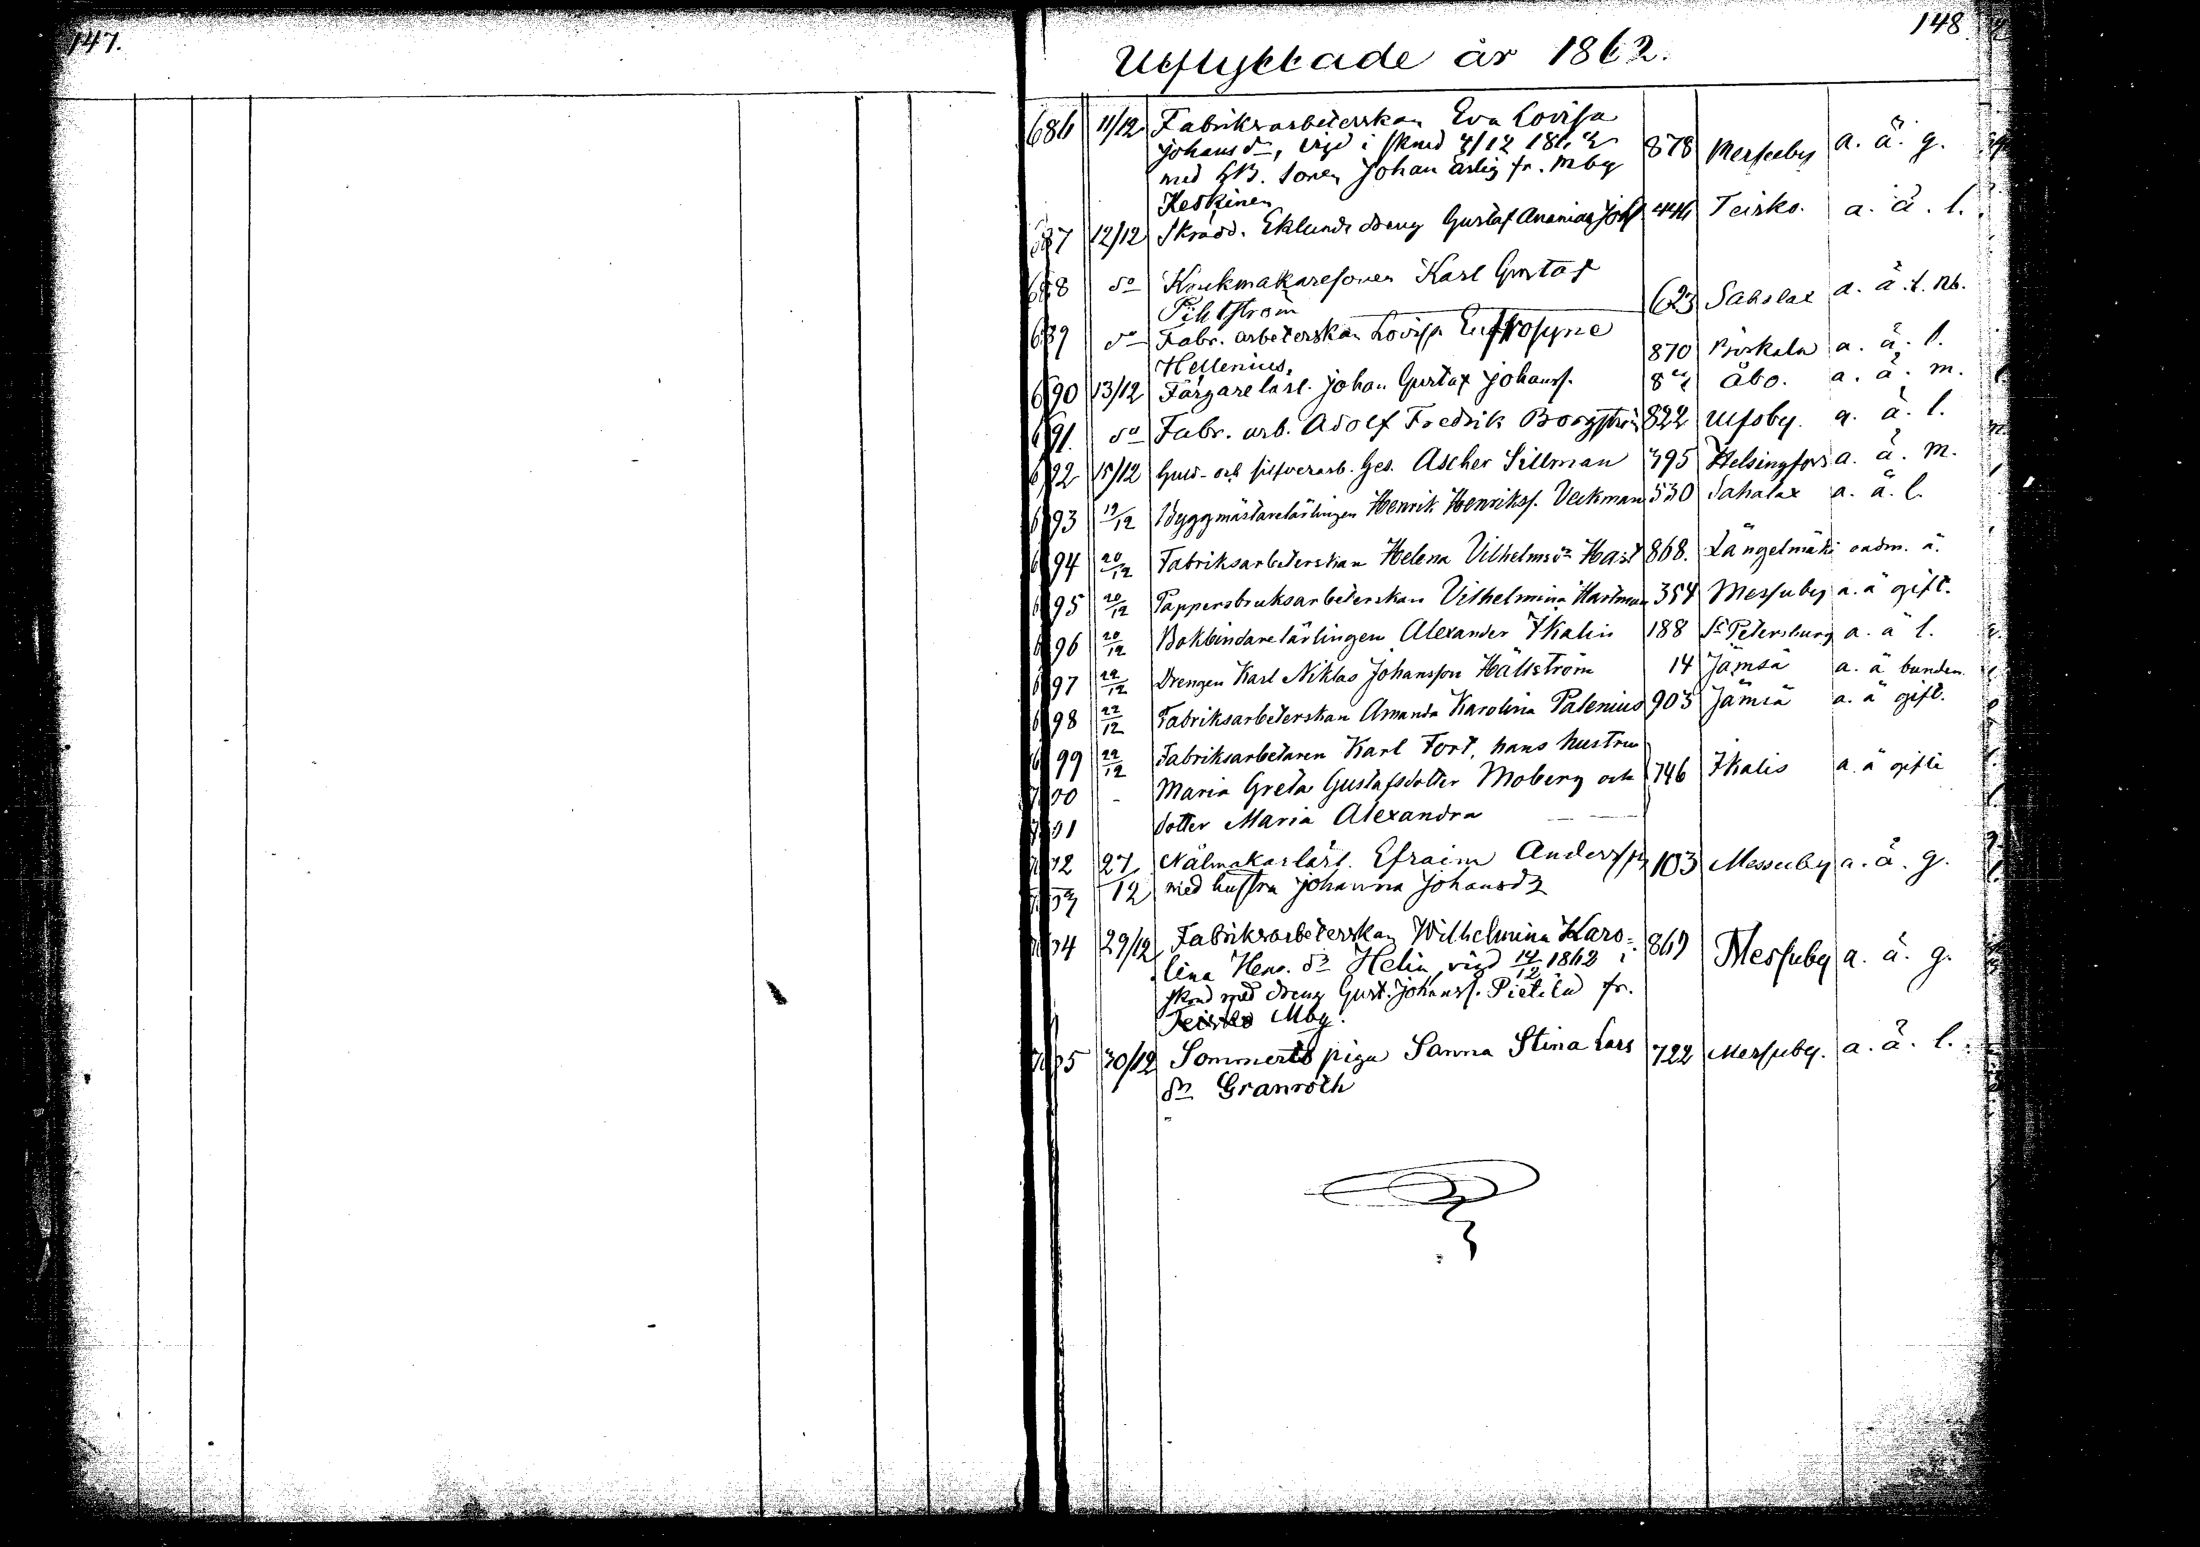 147.
148
Utflyttade år 1862.
686 11/12 Fabriksarbeterskan Eva Lovisa
Johansdr, vigd i 7/12 1862 878 Messuby a. ä. g.
med Sonen Johan fr. Mby
Keskinen
687 12/12 Skrädd. Eklunds dreng Gustaf Ananias Johs. 446 Teisko. a. ä. l.
688 do Krukmakaresonen Karl Gustaf
Pihlström 623 Sahalax a. ä. l. Nb.
689 do Fabr. arbeterskan Lovisa Eufrosyne
Hellenius. 870 Birkala a. ä. l.
690 13/12 Färgarelärl. Johan Gustaf Johanss. Åbo. a. ä. m.
691. do Fabr. arb. Adolf Fredrik Borgström 822 Ulfsby. a. ä. l.
692 15/12 Guld- och silfverarb. Ges. Ascher Sillman 395 Helsingfors a. ä. m.
693 19/12 Byggmästarelärlingen Henrik Henrikss. Veckman 530 Sahalax a. ä. l.
694 20/12 Fabriksarbeterskan Helena Vilhelmsdr Hast 868. Längelmäki ä.
695 20/12 Pappersbruksarbeterskan Vilhelmina Hartman 354 Messuby a. ä gift.
696 20/12 Bokbindarelärlingen Alexander Ikalin 188 St Petersburg a. ä l.
697 22/12 Drengen Karl Niklas Johansson Hällström 14 Jämsä a. ä bunden
698 22/12 Fabriksarbeterskan Amanda Karolina Palenius 903 Jämsä a. ä gift.
699 22/12 Fabriksarbetaren Karl Fort, hans hustru
700 - Maria Greta Gustafsdotter Moberg och 746 Ikalis a. ä gifte
701 dotter Maria Alexandra
702 27/12 Nålmakarlärl. Efraim Andersson 103 Messuby a. ä. g.
703 med hustru Johanna Johansdr
704 29/12 Fabriksarbeterskan Wilhelmina Karo- 869 Messuby a. ä. g.
lina Henr. dr Helin, vigd 14/12 1862 i
med dreng Gust. Johanss. Pietilä fr.
Teisko Mby.
705 30/12 Sommerts piga Sanna Stina Lars 722 Messuby. a. ä. l.
dr Granroth